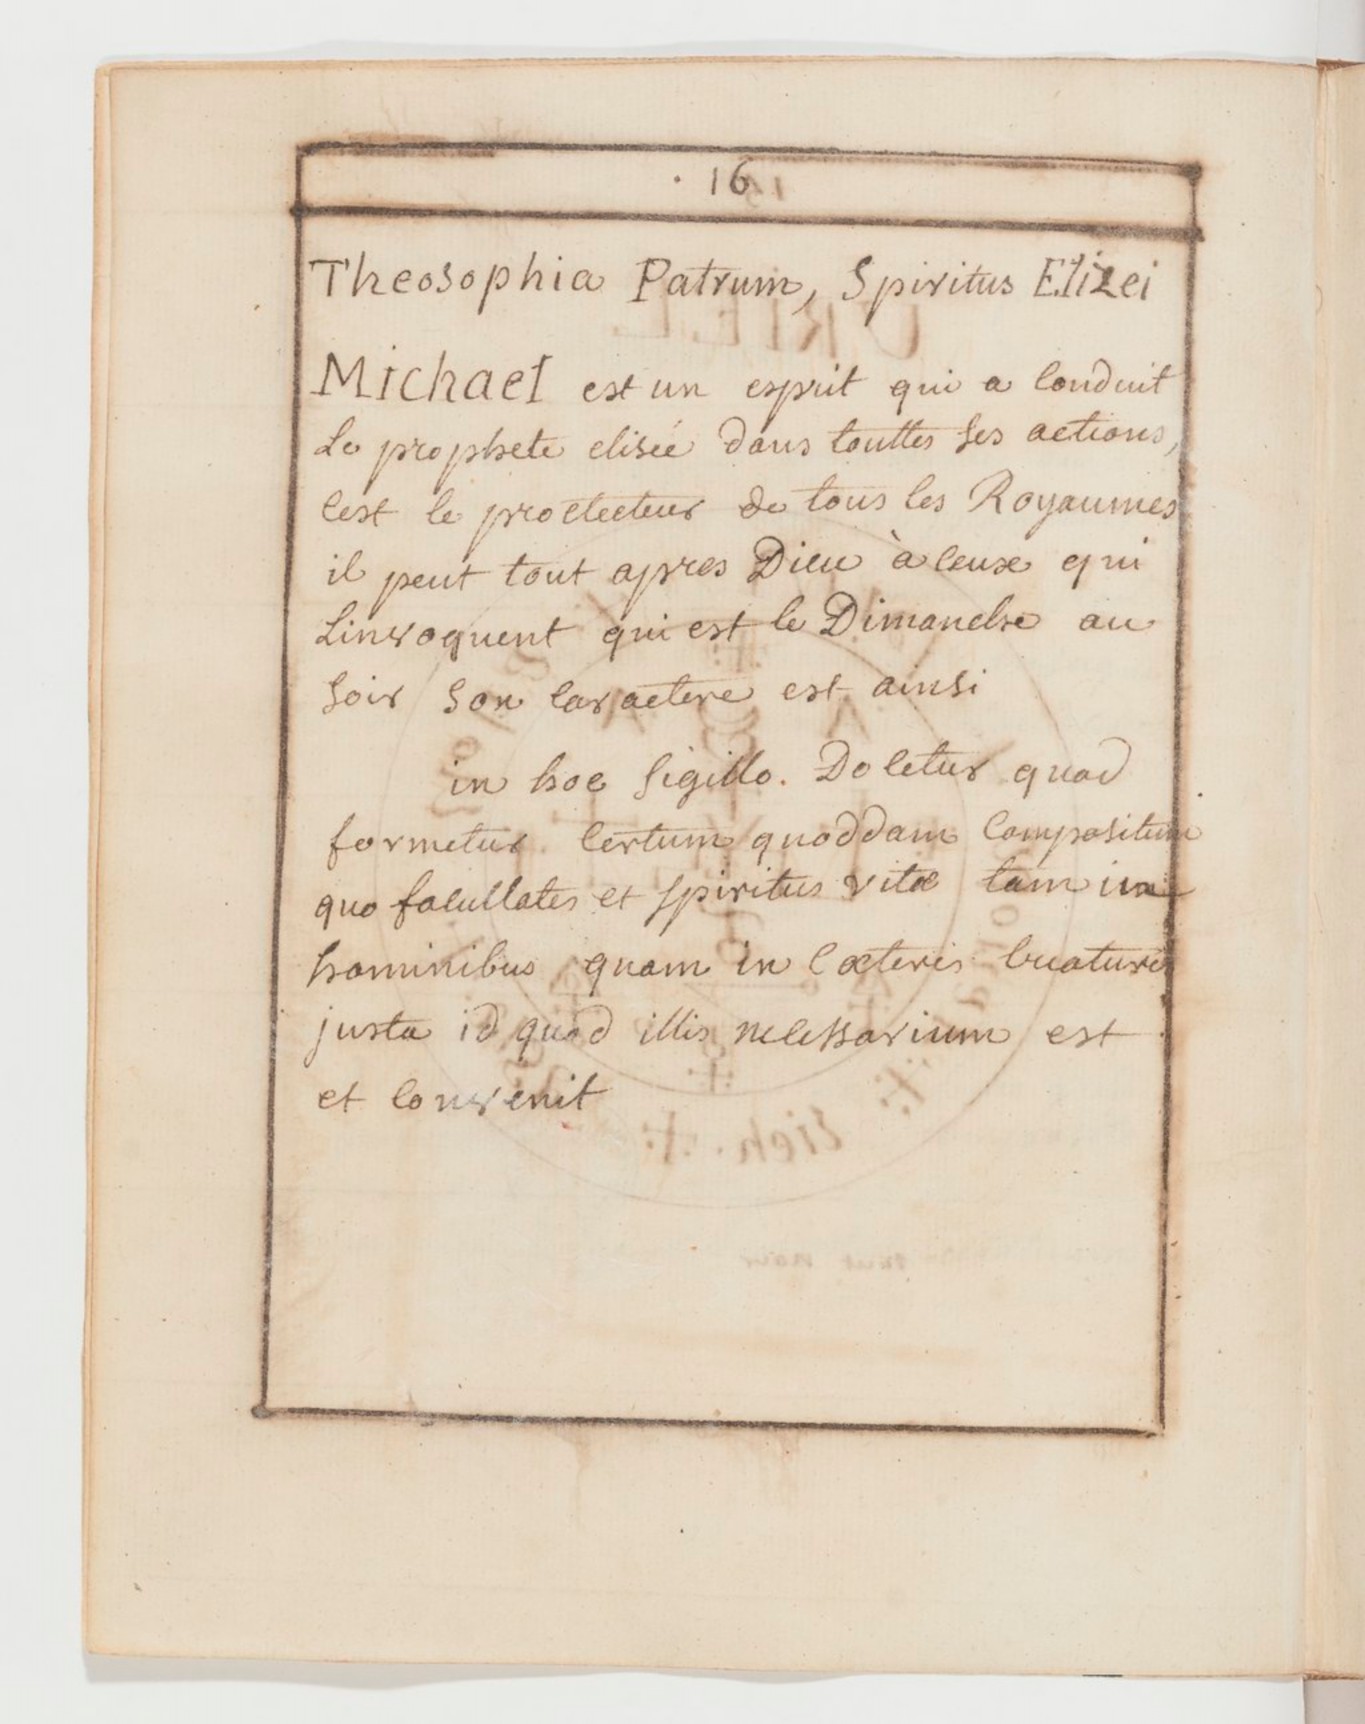 · 16
Theosophia Patrum, Spiritus Elizei
Michael est un esprit qui a conduit
Le prophete elisée dans touttes ses actions,
cest le proctecteur de tous les Royaumes
il peut tout apres Dieu à ceux qui
Linvoquent qui est le Dimanche au
soir son caractere est ainsi
in hoc sigillo. Docetur quod
formetur certum quoddam compositum
quo facultates et spiritus vitæ tam in
hominibus quam in cæteris creaturis
justa id quod illis necessarium est
et convenit